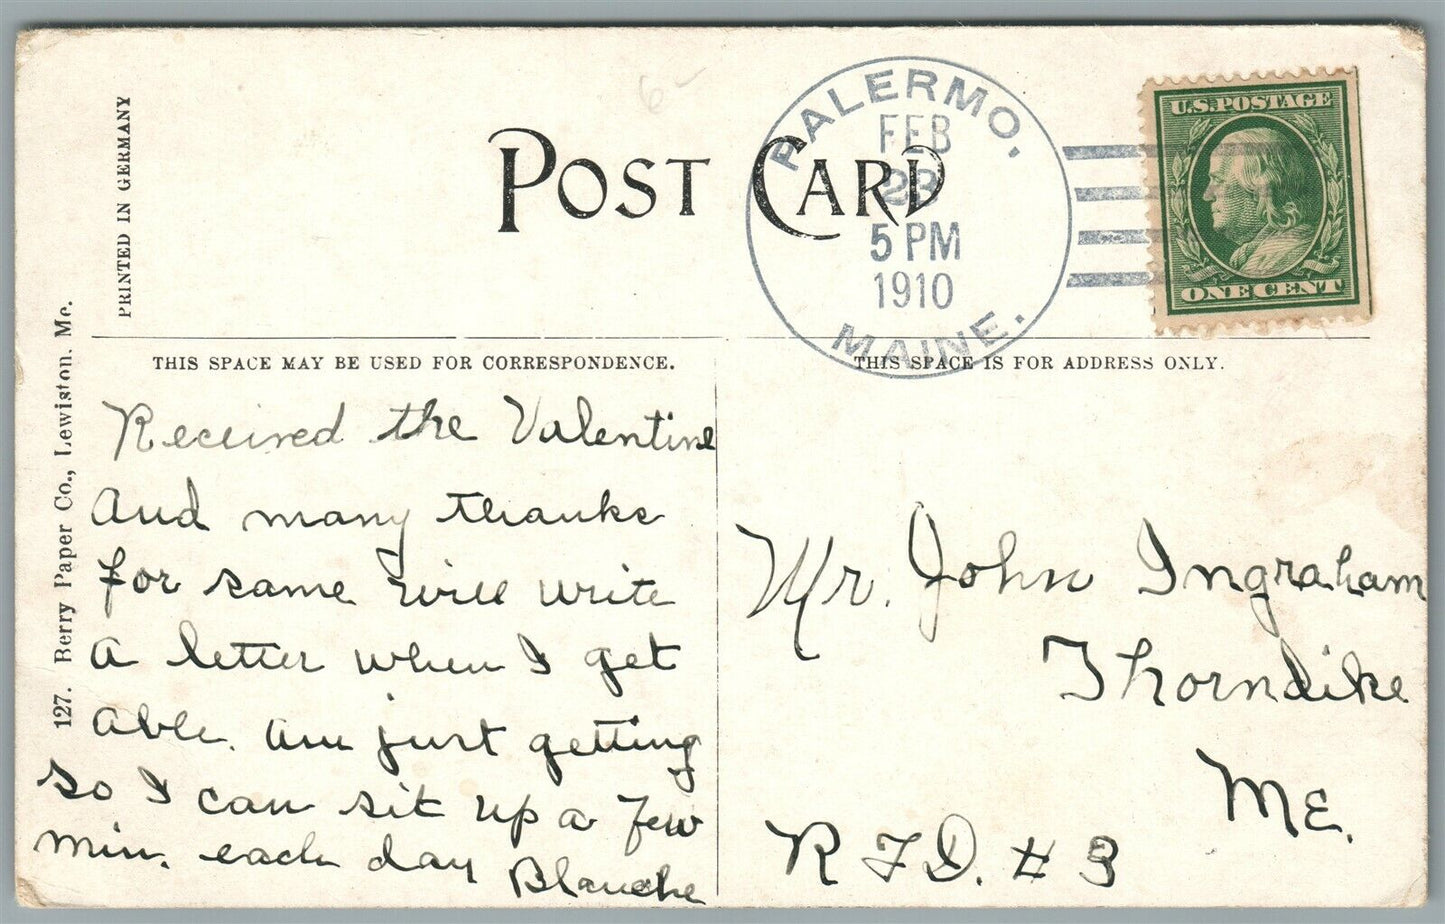 PRINTED IN GERMANY
127. Berry Paper Co., Lewiston, Me.
6-
POST CARD
PALERMO,
FEB
23
5 PM
1910
MAINE.
U.S. POSTAGE
ONE CENT
THIS SPACE MAY BE USED FOR CORRESPONDENCE.
THIS SPACE IS FOR ADDRESS ONLY.
Received the Valentine
and many thanks
for same will write
a letter when I get
able. Am just getting
so I can sit up a few
min. each day
Blanche
Mr. John Ingraham
Thorndike
Me.
R F D. # 3